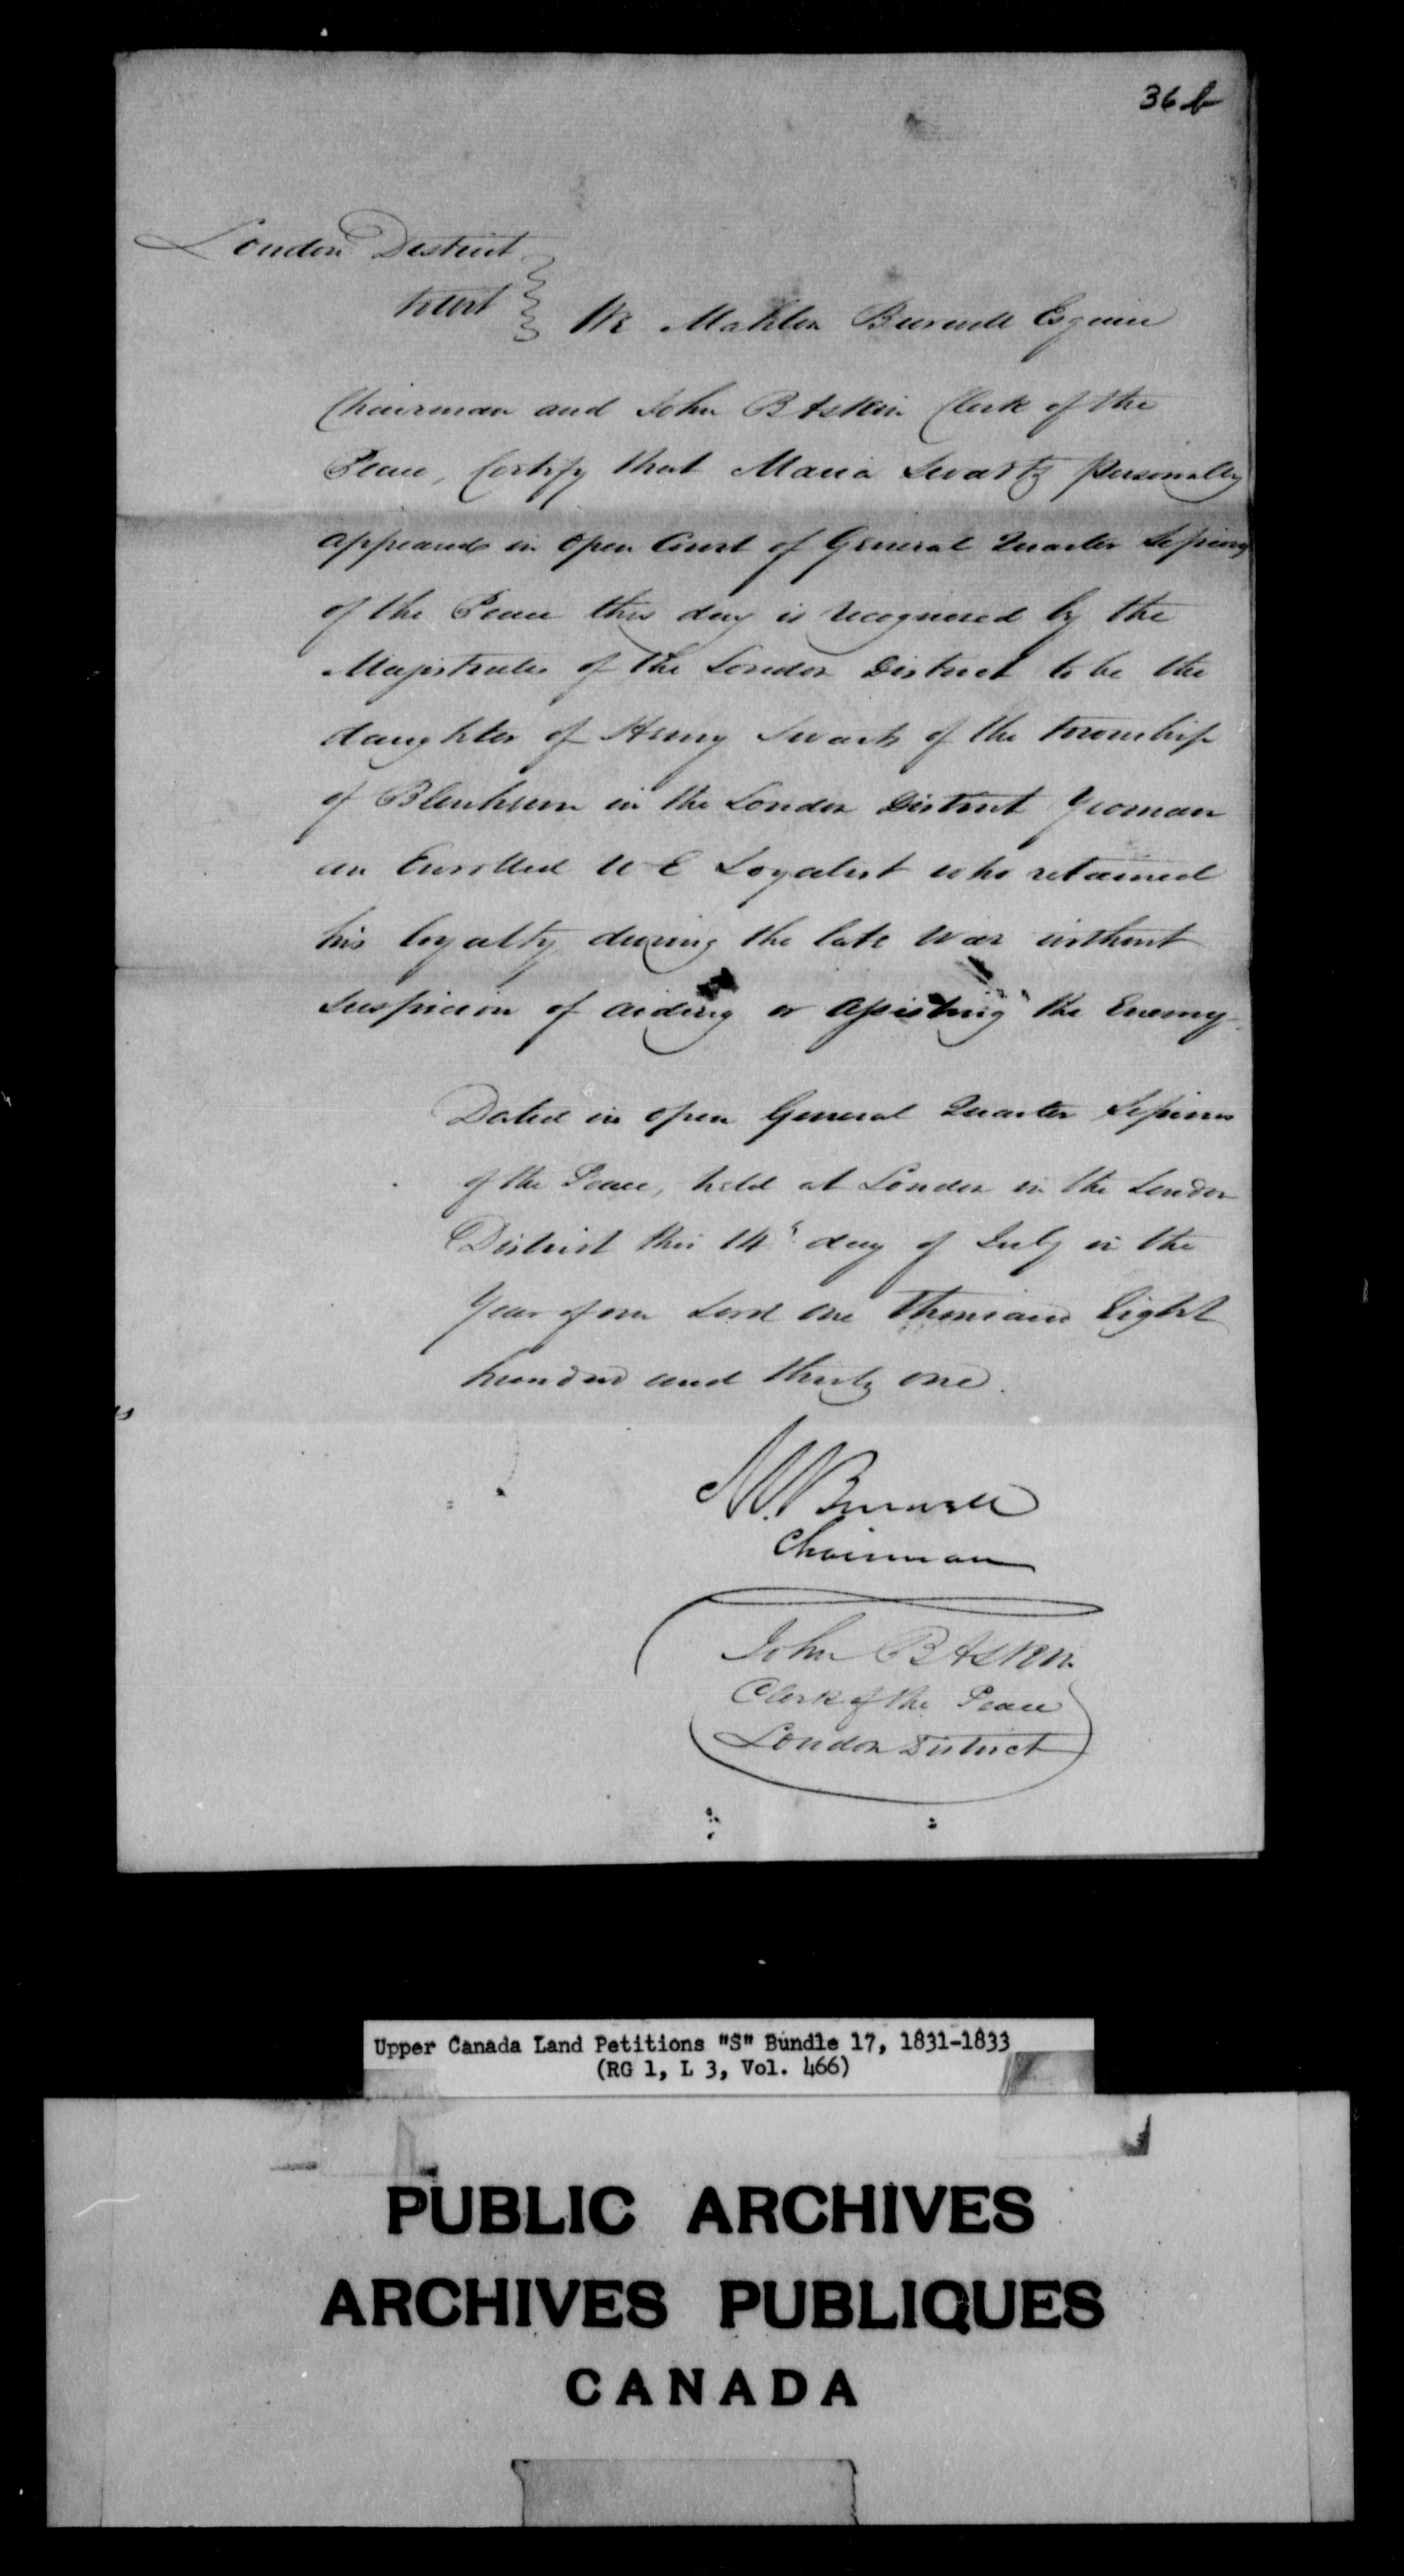 36b
London District
to Wit } We Mahlon Burwell Esquire
Chairman and John B Askin Clerk of the
Peace, Certify that Maria Swartz personally
appeared in open Court of General Quarter Sessions
of the Peace this day is recognised by the
Magistrates of the London District to be the
daughter of Henry Swarts of the township
of Blenheim in the London District Yeoman
an Enrolled U E Loyalist who retained
his loyalty during the late War without
suspicion of aiding or assisting the Enemy
Dated in open General Quarter Sessions
of the Peace, held at London in the London
District this 14th day of July in the
Year of our Lord one Thousand Eight
hundred and thirty one.
M. Burwell
Chairman
John B Askin
Clerk of the Peace
London District
Upper Canada Land Petitions "S" Bundle 17, 1831-1833
(RG 1, L 3, Vol. 466)
PUBLIC ARCHIVES
ARCHIVES PUBLIQUES
CANADA